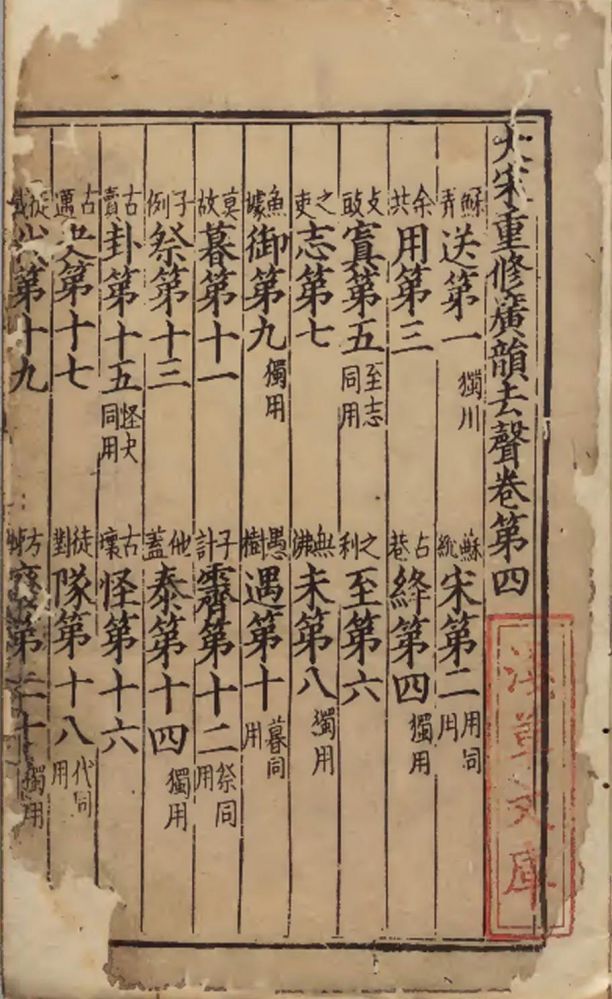 大宋重修廣韻去聲卷第四
蘇弄送第一獨用 蘇統宋第二用同用
余共用第三 古巷絳第四獨用
支豉寘第五至志同用 之利至第六
之吏志第七 無沸未第八獨用
魚據御第九獨用 愚樹遇第十暮同用
莫故暮第十一 子計霽第十二祭同用
子例祭第十三 他蓋泰第十四獨用
古賣卦第十五怪夬同用 古壞怪第十六
古邁夬第十七 徒對隊第十八代同用
徒第十九 方第二十獨用
淺草文庫